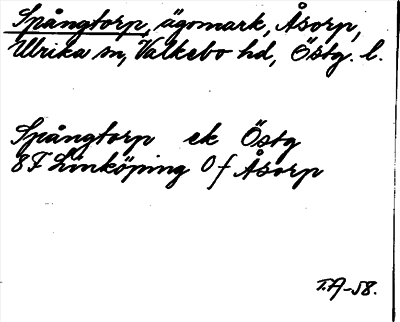 Spångtorp, ägomark, Åsorp,
Ulrika sn, Valkebo hd, Östg. l.
Spångtorp ek Östg
8F Linköping 0 f Åsorp
T.A-58.